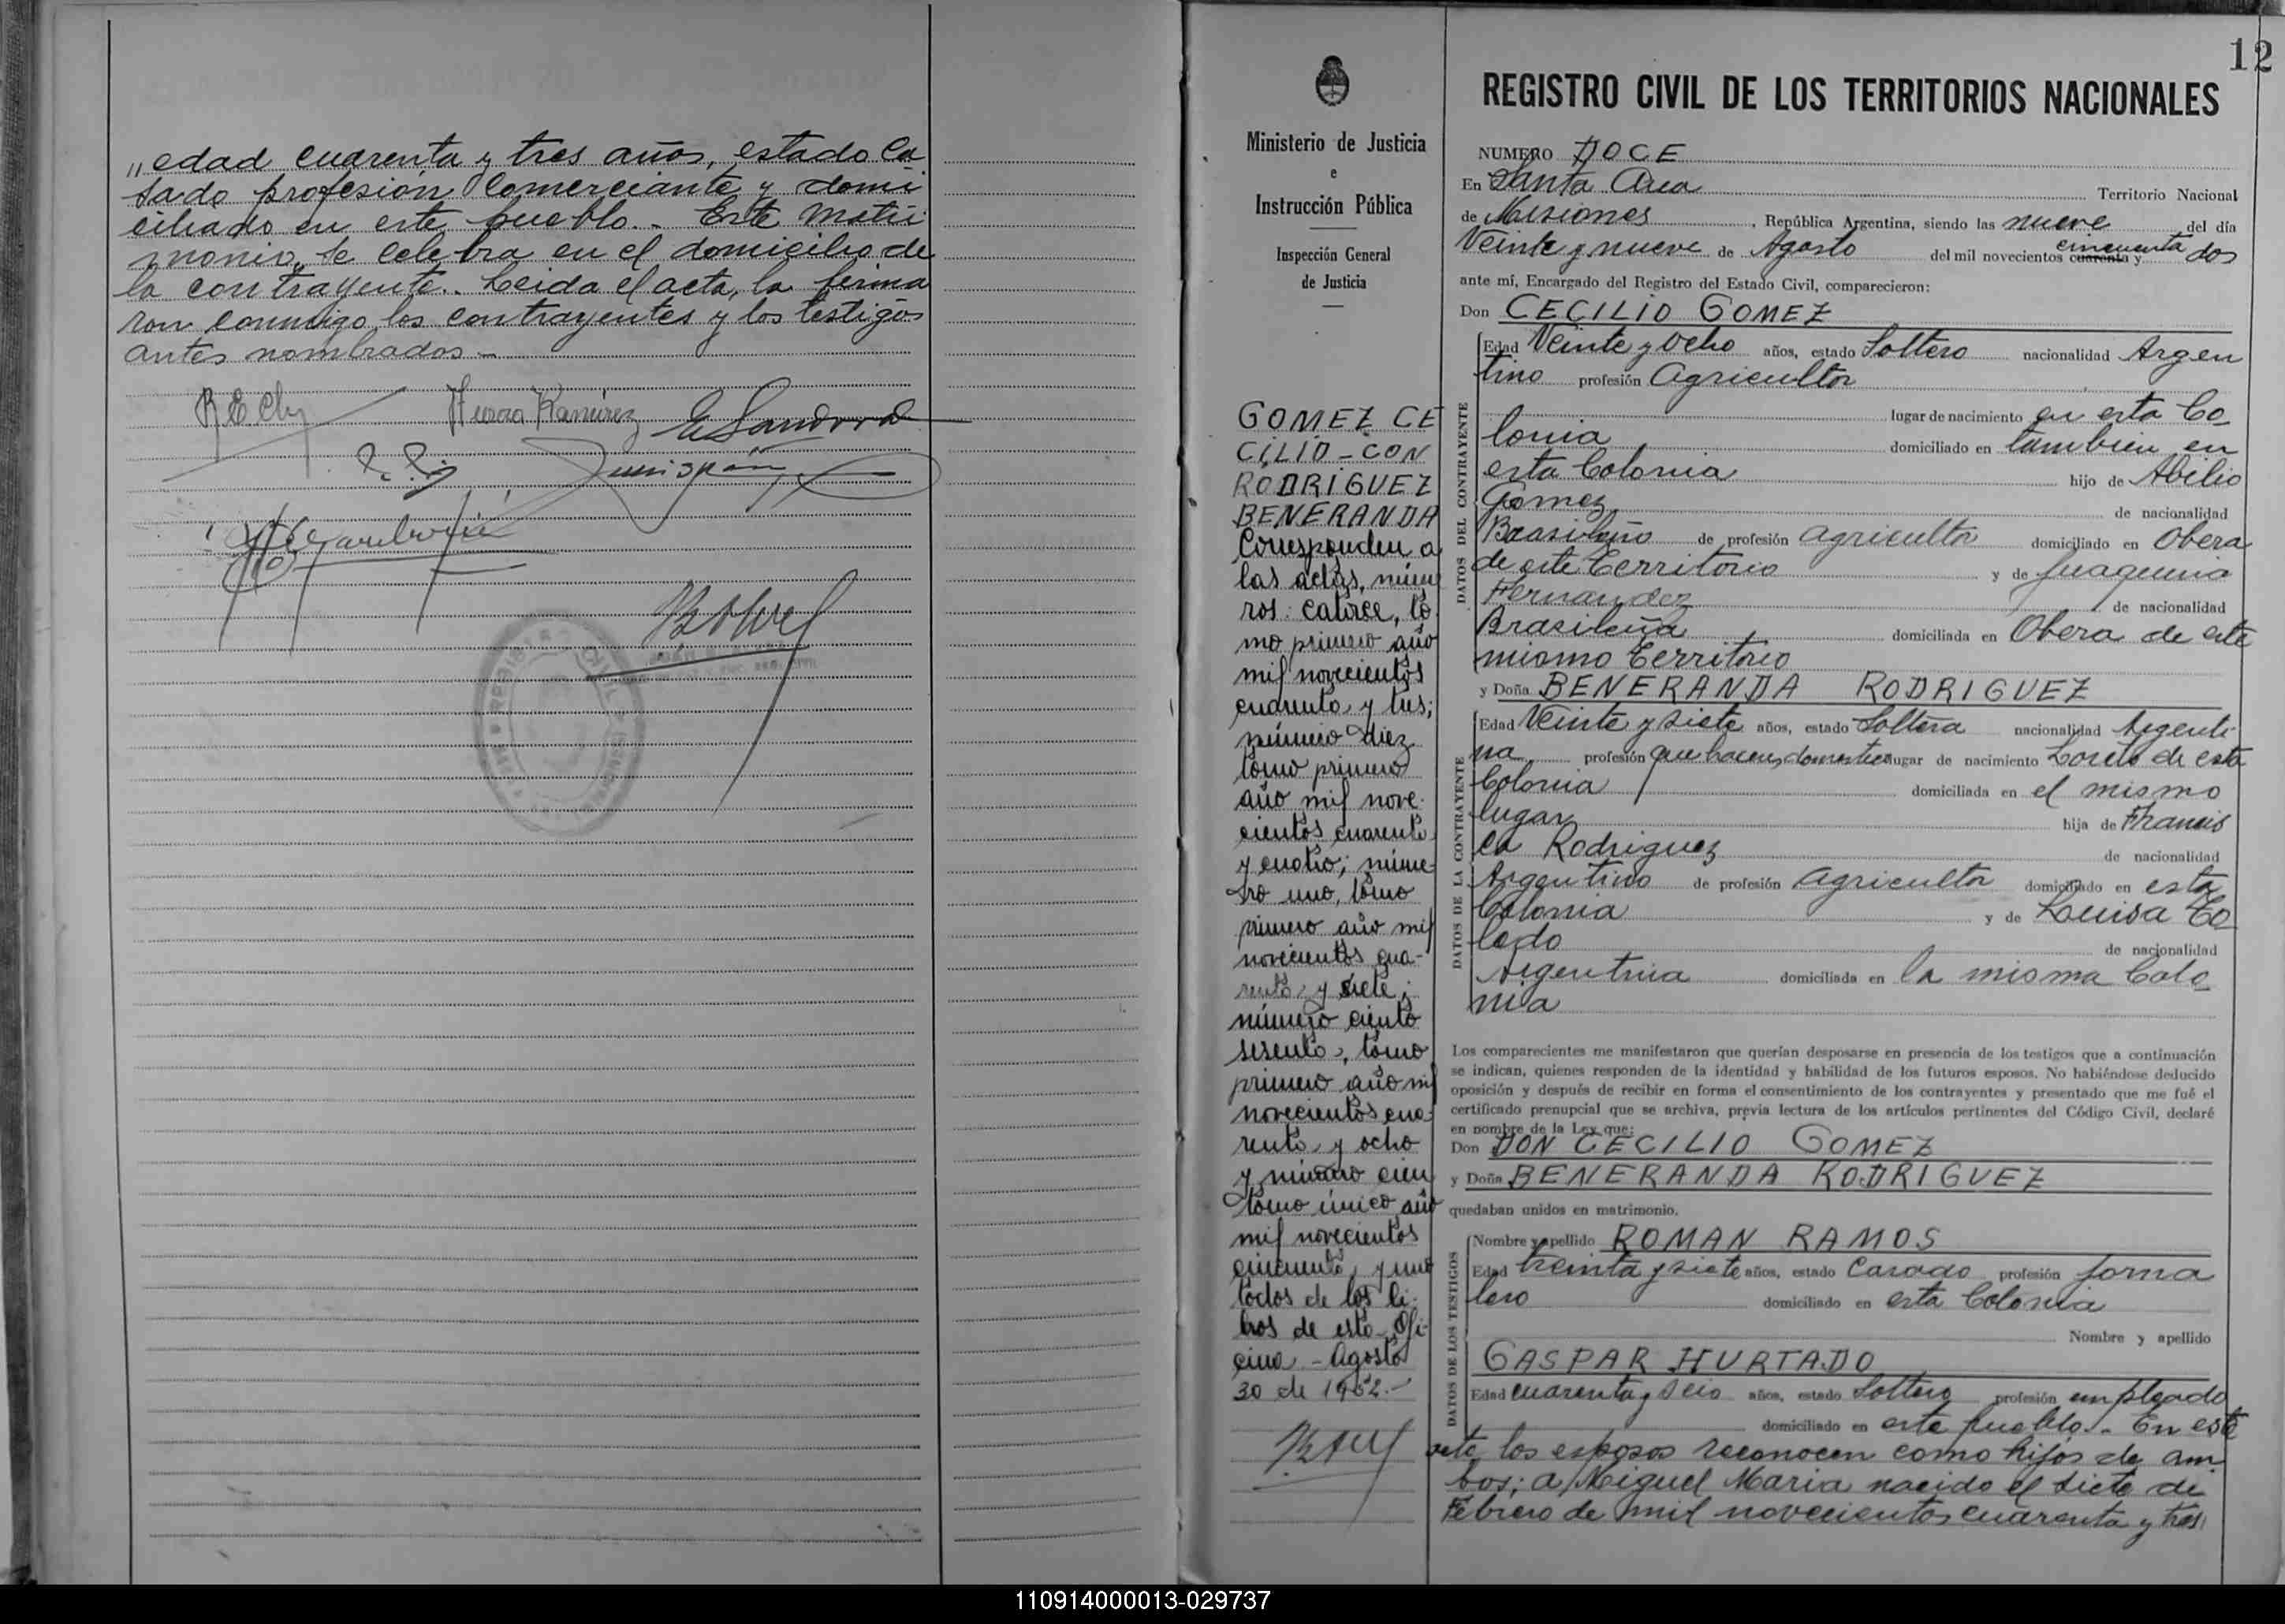 „ edad cuarenta y tres años, estado ca
sado profesión Comerciante y domi
ciliado en este pueblo.- Este matri
monio, se celebra en el domicilio de
la contrayente.. Leida el acta, la firma
ron conmigo, los contrayentes y los testigos
antes nombrados.-
Ramirez
E Sandoval
REGISTRO CIVIL
12
Ministerio de Justicia
e
Instrucción Pública
Inspección General
de Justicia
GOMEZ CE
CILIO - CON
RODRIGUEZ
BENERANDA
Corresponden a
las actas, núme
ros: catorce, to
mo primero año
mil novecientos
cuarenta y tres;
número diez
tomo primero
año mil nove-
cientos cuarenta
y cuatro; núme-
ro uno, tomo
primero año mil
novecientos cua-
renta y siete;
número ciento
sesenta, tomo
primero año mil
novecientos cua-
renta y ocho
y número cien
tomo único año
mil novecientos
cincuenta y uno
todos de los li-
bros de esta Ofi-
cina - Agosto
30 de 1952.-
REGISTRO CIVIL DE LOS TERRITORIOS NACIONALES
NUMERO DOCE
En Santa Ana Territorio Nacional
de Misiones, República Argentina, siendo las nueve del día
Veinte y nueve de Agosto del mil novecientos cuarenta y cincuenta dos
ante mí, Encargado del Registro del Estado Civil, comparecieron:
Don CECILIO GOMEZ
DATOS DEL CONTRAYENTE
Edad Veinte y Ocho años, estado Soltero nacionalidad Argen
tino profesión Agricultor
lugar de nacimiento en esta Co-
lonia domiciliado en tambien en
esta Colonia hijo de Abilio
Gomez de nacionalidad
Brasileño de profesión Agricultor domiciliado en Obera
de este Territorio y de Juaquina
Fernandez de nacionalidad
Brasileña domiciliada en Obera de este
mismo Territorio
y Doña BENERANDA RODRIGUEZ
DATOS DE LA CONTRAYENTE
Edad Veinte y siete años, estado Soltera nacionalidad Argenti
na profesión que haceres domesticos lugar de nacimiento Loreto de esta
Colonia domiciliada en el mismo
lugar hija de Francis
co Rodriguez de nacionalidad
Argentino de profesión Agricultor domiciliado en esta
Colonia y de Luisa To
ledo de nacionalidad
Argentina domiciliada en la misma Colo-
nia
Los comparecientes me manifestaron que querían desposarse en presencia de los testigos que a continuación
se indican, quienes responden de la identidad y habilidad de los futuros esposos. No habiéndose deducido
oposición y después de recibir en forma el consentimiento de los contrayentes y presentado que me fué el
certificado prenupcial que se archiva, prévia lectura de los artículos pertinentes del Código Civil, declaré
en nombre de la Ley que:
Don DON CECILIO GOMEZ
y Doña BENERANDA RODRIGUEZ
quedaban unidos en matrimonio.
DATOS DE LOS TESTIGOS
Nombre y apellido ROMAN RAMOS
Edad treinta y siete años, estado Casado profesión jorna
lero domiciliado en esta Colonia
Nombre y apellido
GASPAR HURTADO
Edad cuarenta y seis años, estado Soltero profesión empleado
domiciliado en este pueblo.- En este
acto los esposos reconocen como hijos de am
bos; a Miguel Maria nacido el siete de
Febrero de mil novecientos cuarenta y tres,
110914000013-029737